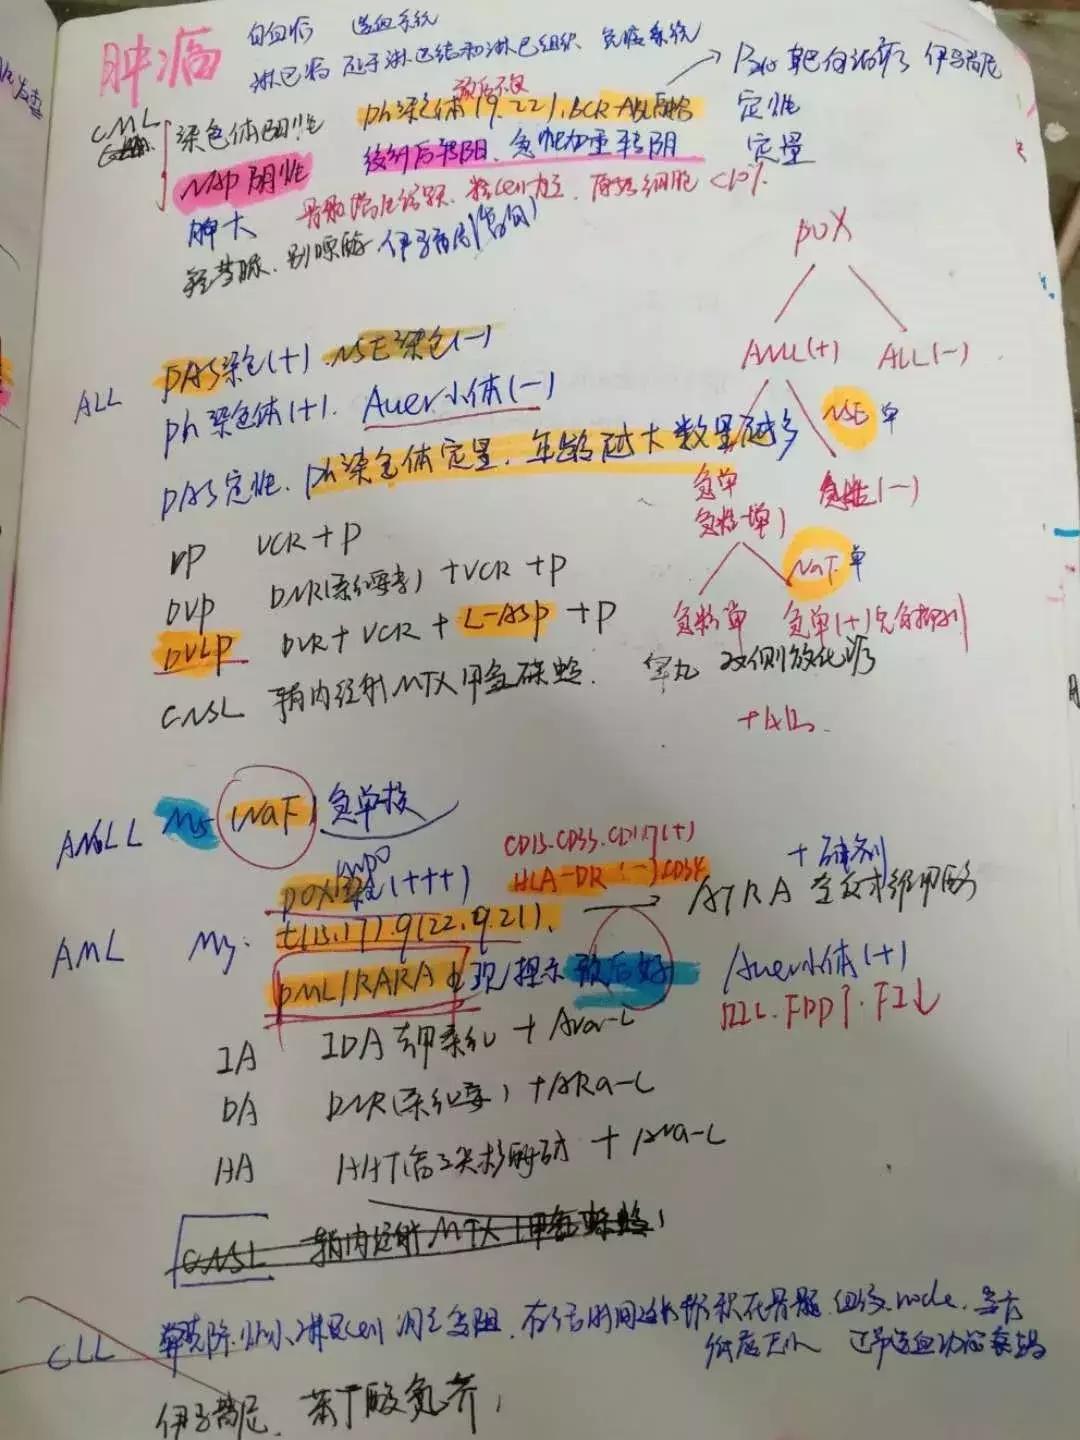 肿瘤
白血病 造血系统
淋巴病 起于淋巴结和淋巴组织 免疫系统
→ 靶向治疗 伊马替尼
CML 染色体阳性 ph染色体(9.22).BCR-ABL融合 定性
预后不良
NAP阴性 缓解后转阳、急性加重转阴 定量
脾大 骨髓 粒cell为主,原始细胞<10%
羟基脲、别嘌醇
POX
AML(+) ALL(-)
NSE 单
急单 急粒(-)
急粒单)
NaF 单
急粒单 急单(+)完全抑制
ALL PAS染色(+).NSE染色(-)
ph染色体(+). Auer小体(-)
PAS定性、ph染色体定量,年龄越大数量越多
VP VCR+P
DVP DNR(柔红霉素)+VCR+P
DVLP DVR+VCR+L-ASP+P
CNSL 鞘内注射MTX甲氨蝶蛉. 睾丸 双侧放化疗
ANLL M5 (NaF) 急单核
MPO
POX染色(+++) CD13.CD33.CD117(+)
HLA-DR(-)CD34
+砷剂
→ ATRA 全反式维甲酸
AML M3. t(15.17).9(22.9.21).
PML/RARA出现/提示预后好 Auer小体(+)
FDP↑.FIb↓
IA IDA去甲柔红+Ara-L
DA DNR(柔红霉)+ARa-L
HA HHT(高三尖杉酯碱+Ara-L
CNSL 鞘内注射MTX(甲氨蝶蛉)
CLL 淋巴cell 凋亡受阻,存活时间延长堆积在骨髓.血液.node.
伊马替尼、苯丁酸氮芥,